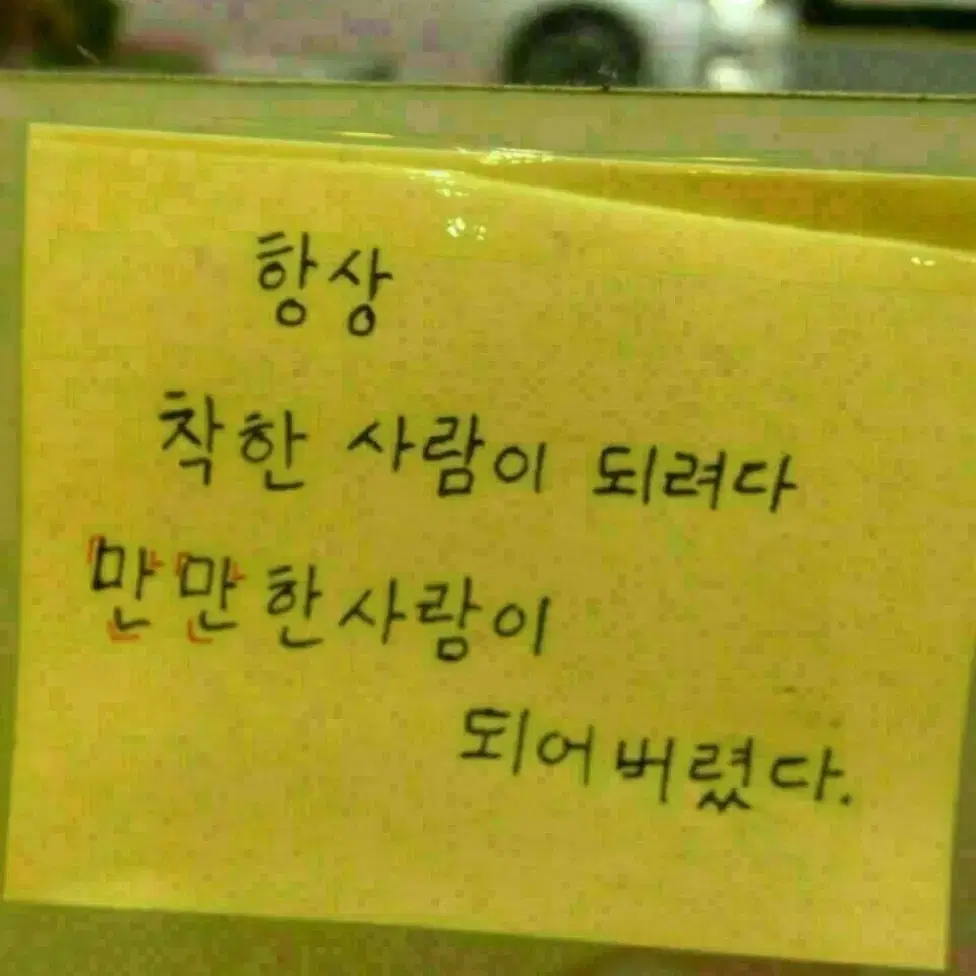 항상
착한 사람이 되려다
만만한 사람이
되어버렸다.